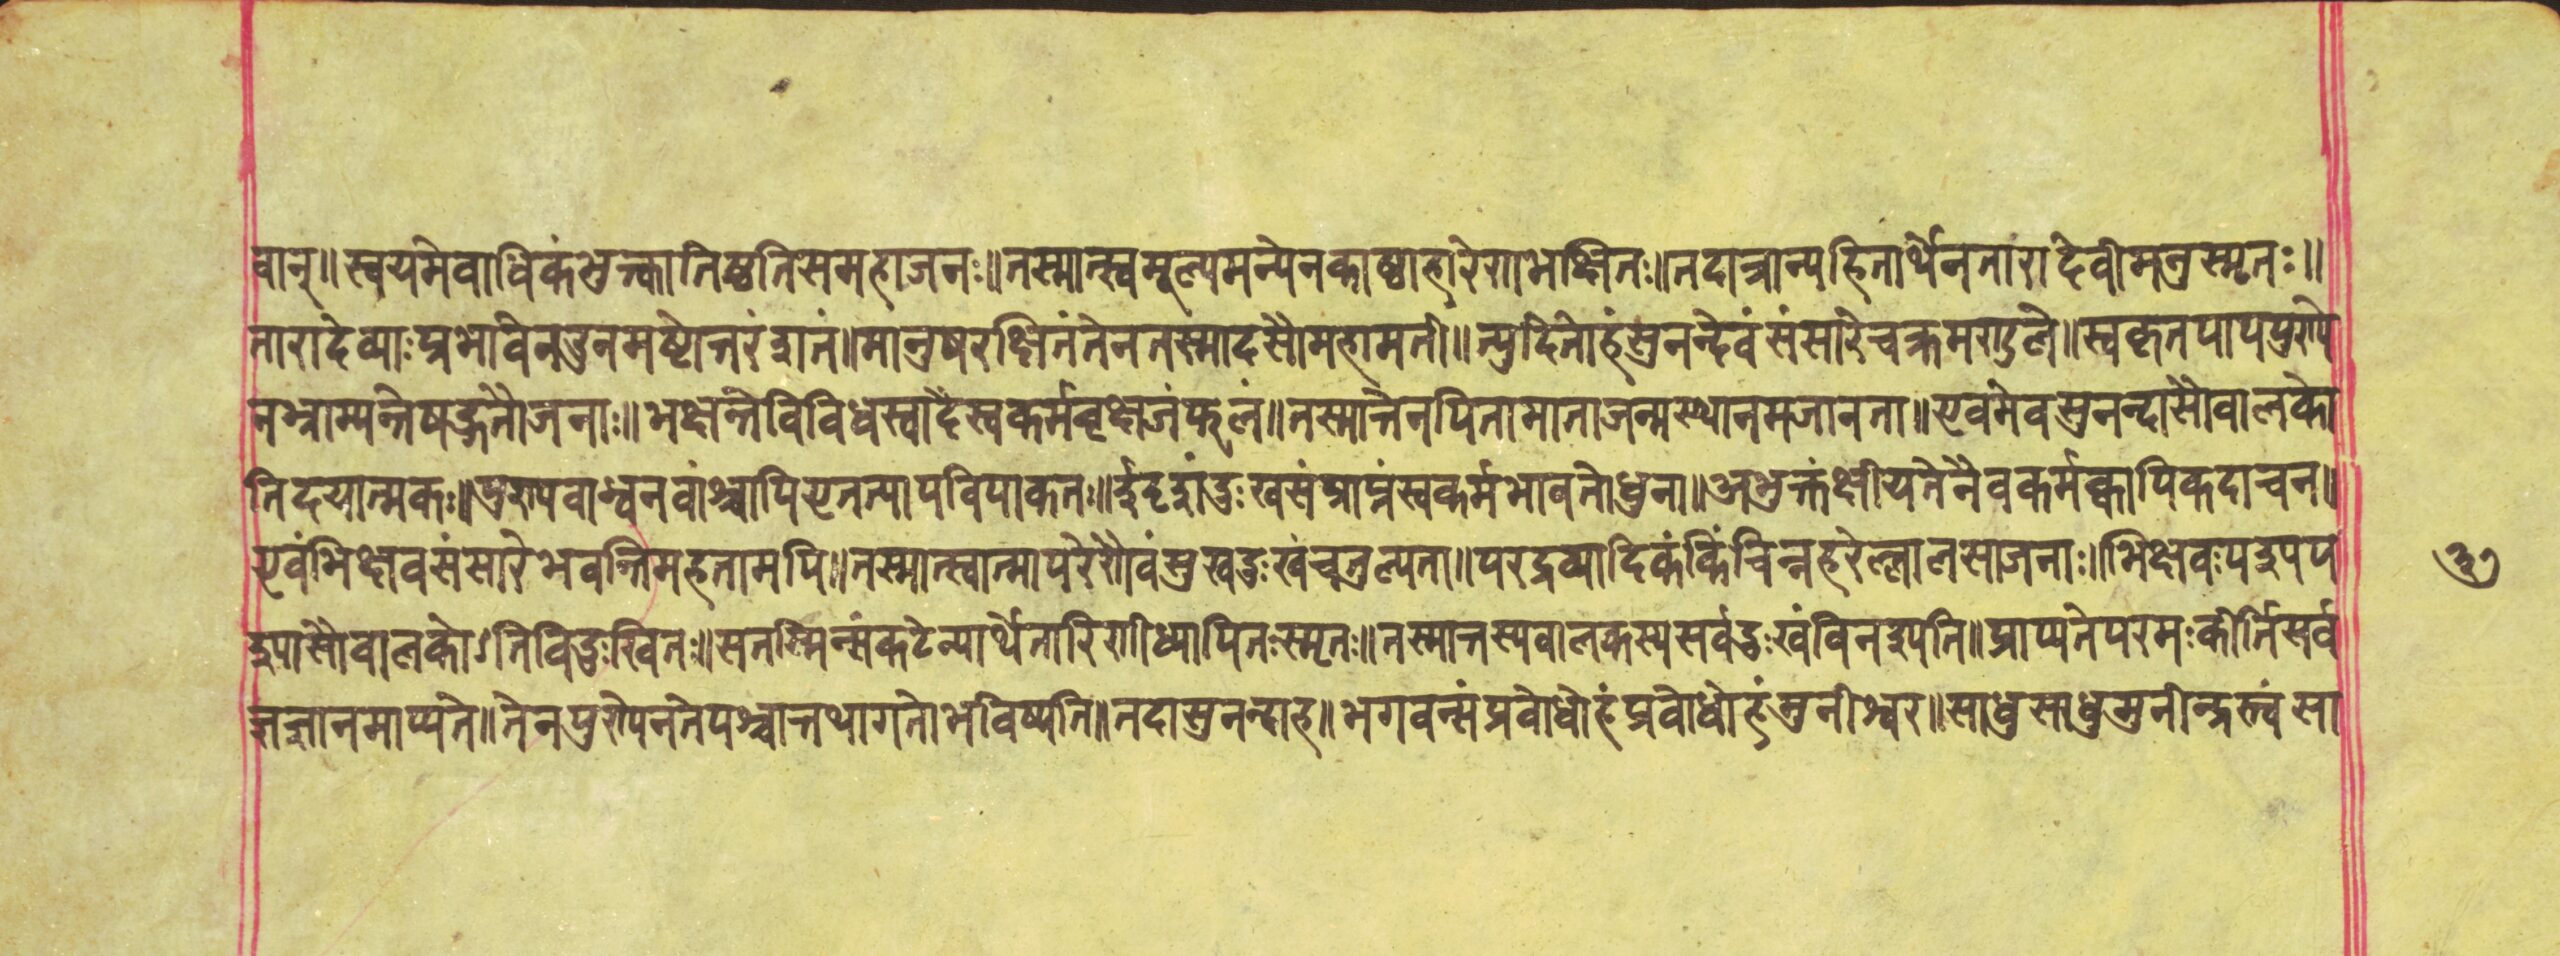 वान्॥स्वयमेवाधिकंभुक्त्वातिष्ठतिसमहाजनः॥तस्मात्स्वमूल्यमन्येनकाष्ठाहारेणभक्षितः॥तदात्रान्यहितार्थेनतारादेवीमनुस्मृतः॥
तारादेव्याःप्रभावेनऊनमष्टोत्तरंशतं॥मानुषरक्षितंतेनतस्मादसौमहामती॥त्युदितोहंसुनन्देवंसंसारेचक्रमण्डले॥स्वकृतपापपुण्ये
नभ्राम्यन्तेषड्गतौजनाः॥भक्षन्तेविविधस्वादैस्वकर्मवृक्षजंफलं॥तस्मात्तेनपितामाताजन्मस्थानमजानता॥एवमेवसुनन्दासौवालको
तिदयात्मकः॥पुण्यवान्ध्वनवांश्चापिएतत्पापविपाकतः॥ईदृशंदुःखसंप्राप्तंस्वकर्मभावतोधुना॥अभुक्तंक्षीयतेनैवकर्मक्वापिकदाचन॥
एवंभिक्षवसंसारेभवन्तिमहतामपि॥तस्मात्स्वात्मापरेणैवंसुखदुःखंचतुल्यता॥परद्रव्यादिकंकिंचिन्नहरेल्लालसाजनाः॥भिक्षवःपश्यपप
श्यासौवालकोऽतिविदुःखितः॥सतस्मिन्संकटेन्यार्थेतारिणीध्यापितःस्मृतः॥तस्मात्तस्यवालकस्यसर्वदुःखंविनश्यति॥प्राप्यतेपरमःकीर्तिसर्व
ज्ञज्ञानमाप्यते॥तेनपुण्येनतेपश्चात्तथागतोभविष्यति॥तदासुनन्दाह॥भगवन्संप्रवोधोहंप्रवोधोहंमुनीश्वर॥साधुसाधुमुनीन्द्रस्त्वंसा